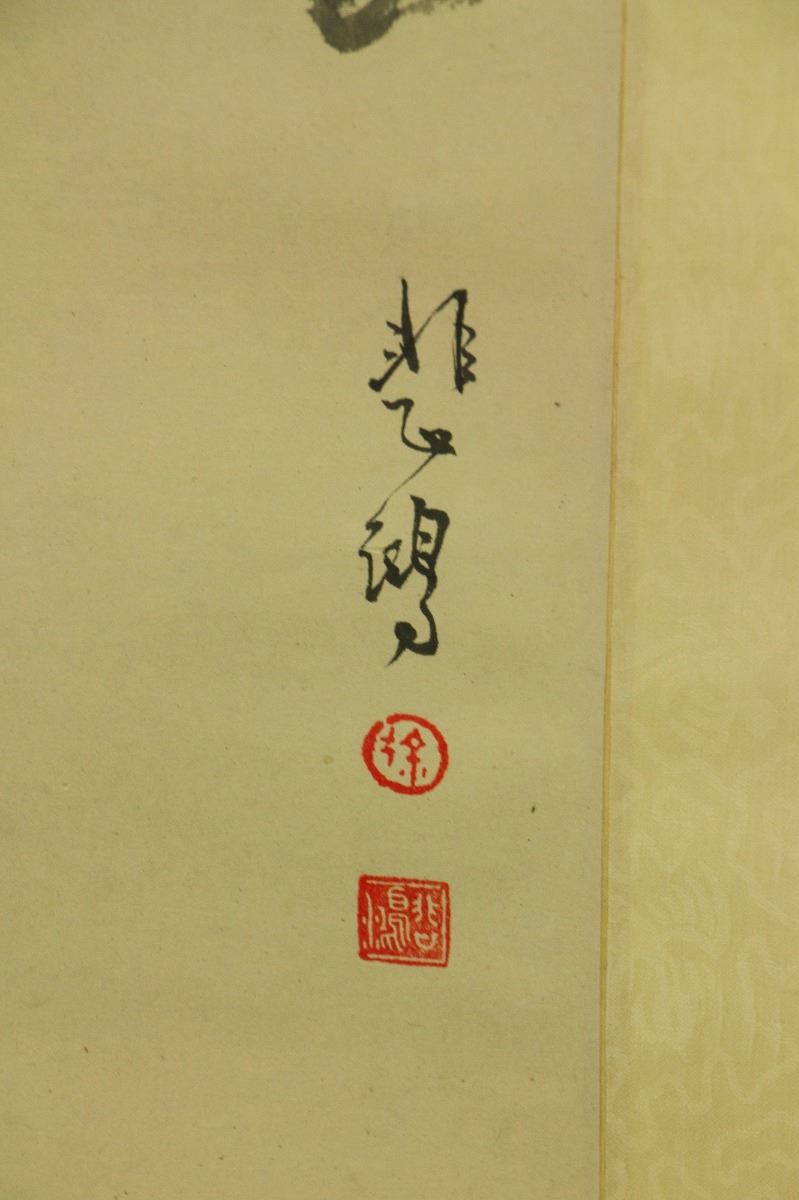 悲鴻
徐
悲鴻